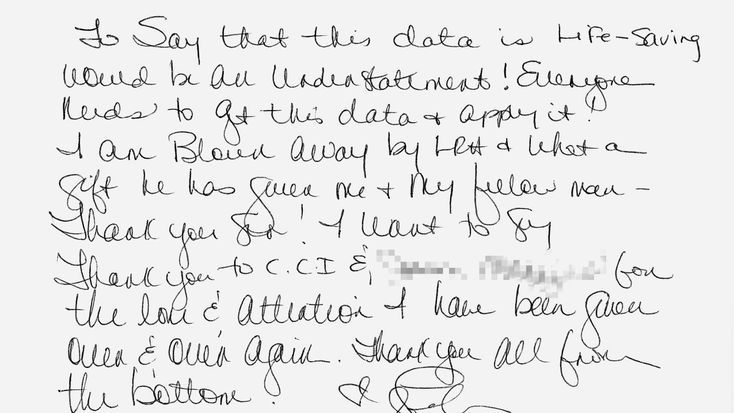 To Say that this data is Life-Saving
would be an Understatement! Everyone
Needs to get this data & apply it!
I am Blown away by LRH & what a
gift he has given me & My fellow man -
Thank you Sir! I want to Say
Thank you to C.C.I & for
the love & Attention I have been given
Over & Over Again. Thank you All from
the bottom!